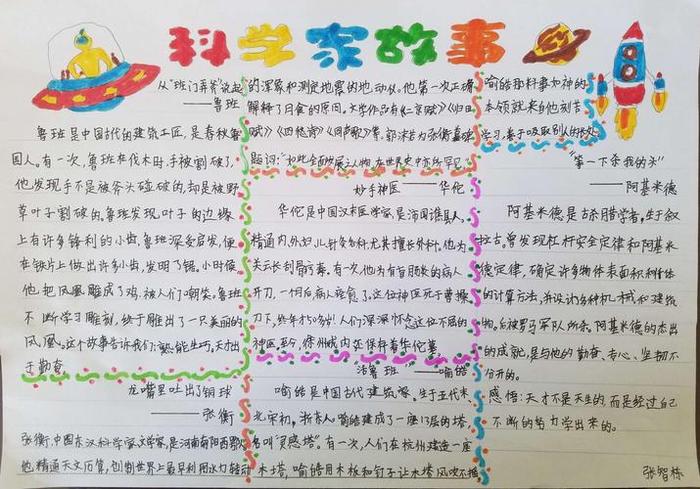 科学家故事
从"班门弄斧"说起
——鲁班
鲁班是中国古代的建筑工匠,是春秋鲁
国人。有一次,鲁班在伐木时,手被割破了,
他发现手不是被斧头碰破的,却是被野
草叶子割破的。鲁班发现叶子的边缘
上有许多锋利的小齿,鲁班深受启发,便
在铁片上做出许多小齿,发明了锯。小时候,
他把凤凰雕成了鸡,被人们嘲笑。鲁班
不断学习雕刻,终于雕出了一只美丽的
凤凰。这个故事告诉我们:熟能生巧。天才出
于勤奋
龙嘴里吐出了铜球
——张衡
张衡,中国东汉科学家,文学家,是河南南阳西鄂人。
他精通天文历算,创制世界上最早利用水力转动
的浑象和测定地震的地动仪。他第一次正确
解释了月食的原因。文学作品有《二京赋》《归田
赋》《四愁诗》《同声歌》等。郭沫若为张衡墓碑
题词:"如此全面发展之人物,在世界史中亦所罕见。"
妙手神医——华佗
华佗是中国汉末医学家,是沛国谯县人。
精通内、外、妇、儿、针灸各科,尤其擅长外科。他为
关云长刮骨疗毒。有一次,他为盲肠炎的病人
开刀,一个月后病人痊愈了。这位神医死于曹操
刀下,终年才60多岁!人们深深怀念这位不屈的
神医,至今,徐州城内还保存着华佗墓
活鲁班——"喻皓"
喻皓是中国古代建筑家。生于五代末、
北宋初。浙东人。喻皓建成了一座13层的塔,
名叫"灵感塔"。有一次,人们在杭州建造一座
木塔,喻皓用木板和钉子让木塔风吹不摇
喻皓那料事如神的
本领就来自他刻苦
学习,善于吸取别人的长处。
"第一下杀我的头"
——阿基米德
阿基米德是古希腊学者。生于叙
拉古。曾发现杠杆安全定律和阿基米
德定律,确定许多物体表面积和体
的计算方法,并设计多种机械和建筑
物。后被罗马军队所杀。阿基米德的杰出
的成就,是与他的勤奋、专心、坚韧不
分开的。
感悟:天才不是天生的,而是经过自己
不断的努力学出来的。
张智栋